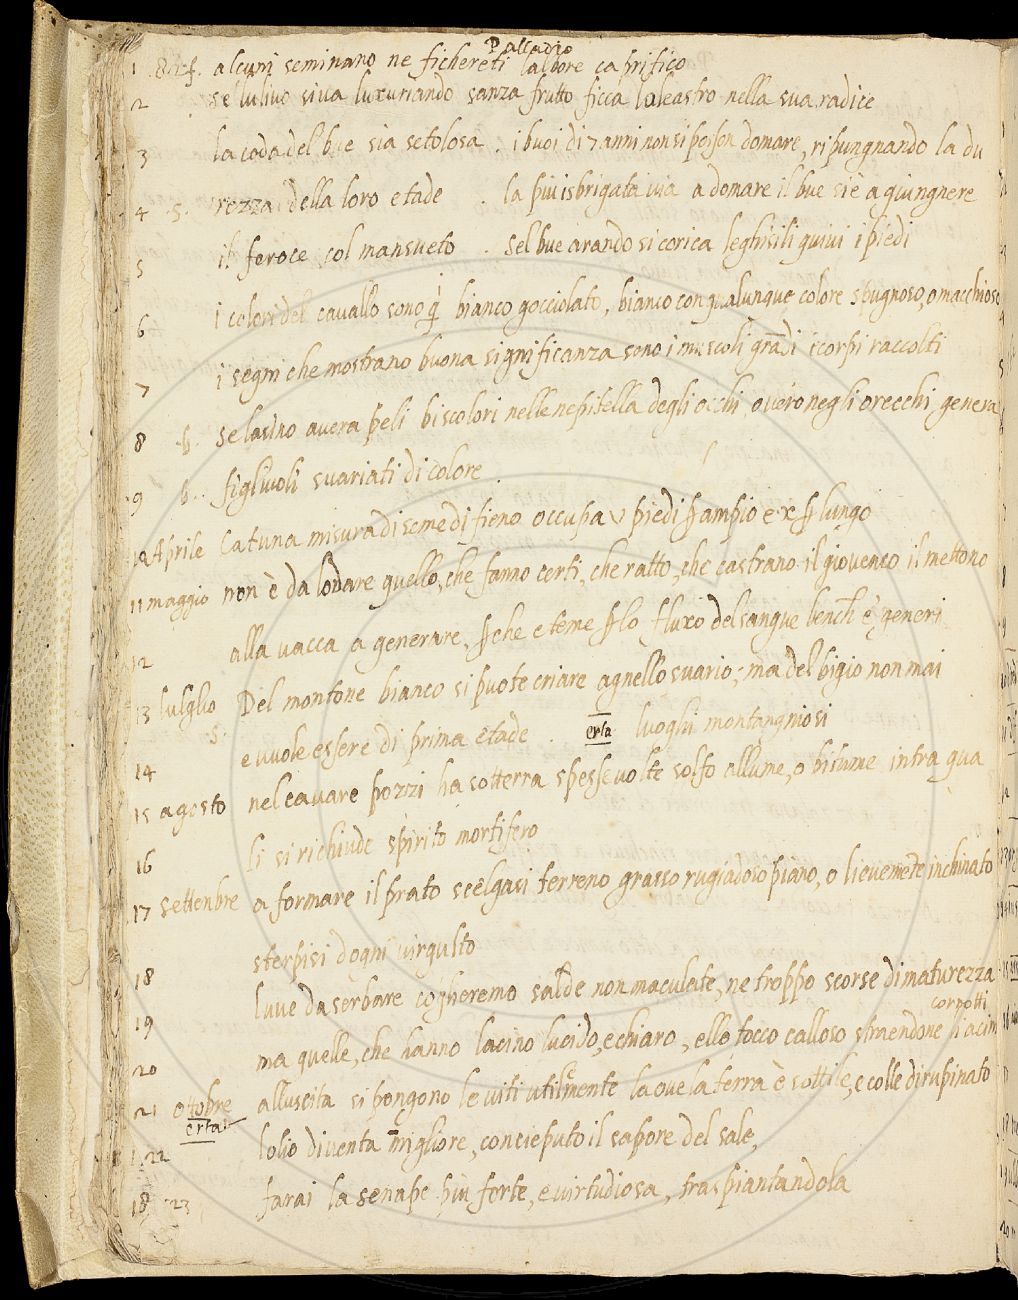 Palladio
1 alcuni seminano ne fichereti lalbore caprifico
2 se lulivo siva luxuriando sanza frutto ficca loleastro nella sua radice
3 la coda del bue sia setolosa . i buoi di 7 anni non si posson domare, ripungnando la du
4 .5. rezza della loro etade . la piu isbrigata via a domare il bue si è agiungnere
5 il feroce col mansueto . sel bue arando si corica leghisili quivi i piedi
6 i colori del cavallo sono q̇ bianco gocciolato, bianco con qualunque colore spugnoso, o macchioso
7 i segni che mostrano buona significanza sono i muscoli grādi i corpi raccolti
8 .b. se lasino avera peli biscolori nelle nepitella degli occhi overo negli orecchi, genera
9 b. figliuoli svariati di colore .
10 Aprile Catuna misura di some di fieno occupa v piedi ꝑ ampio e x ꝑ lungo
11 maggio non è da lodare quello, che fanno certi, che ratto, che castrano il giovenco il mettono
12 alla vacca a generare, ꝑche e teme ꝑ lo fluxo del sangue bench è generi
13 luglio Del montone bianco si puote criare agnello svario; ma del bigio non mai
14 .5. e vuole essere di prima etade . erta luoghi montangniosi
15 agosto nel cavare pozzi ha sotterra spesse volte solfo allume, o bitume intra qua
16 li si richiude spirito mortifero
17 settenbre a formare il prato scelgasi terreno grasso rugiadoso piano, o lievemēte inchinato
18 sterpisi dogni virgulto
19 luve da serbare coglieremo salde non maculate, ne troppo scorse di maturezza
corrotti
20 ma quelle, che hanno lacino lucido, e chiaro, ello tocco calloso straendone li acin
21 ottobre alluscita si pongono le viti utilmente la ove la terra è sottile, e colle dirupinato
erta
22 lolio diventa migliore, concieputo il sapore del sale,
18 23 farai la senape piu forte, e virtudiosa, traspiantandola